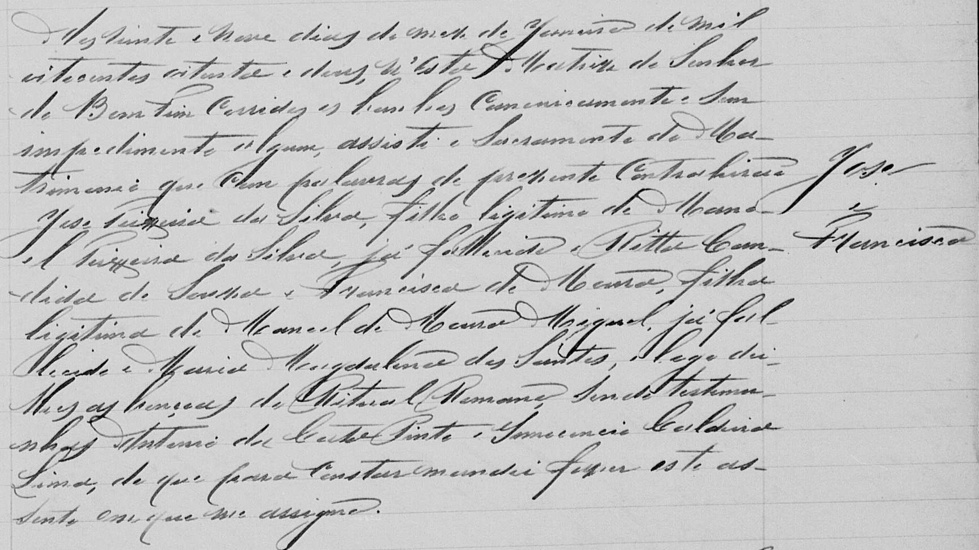 Aos vinte e nove dias do mez de Janeiro de mil
oitocentos oitenta e dous, n'esta Matriz do Senhor
do Bomfim Corridos os banhos Canonicamente e sem
impedimento algum, assisti o Sacramento do Ma-
trimonio que com palavras de prezente Contrahirão
José Teixeira da Silva, filho legitimo de Mano-
el Teixeira da Silva, já fallecido e Ritta Can-
dida de Souza e Francisca de Moura, filha
legitima de Manoel de Moura Miguel, já fal-
lecido e Maria Magdalena dos Santos, e logo dei-
lhes as bençaos do Ritual Romano, sendo testemu-
nhas Antonio da Costa Pinto e Innocencio Caldeira
Lima, do que para constar mandei fazer este as-
sento em que me assigno.
José
e
Francisca